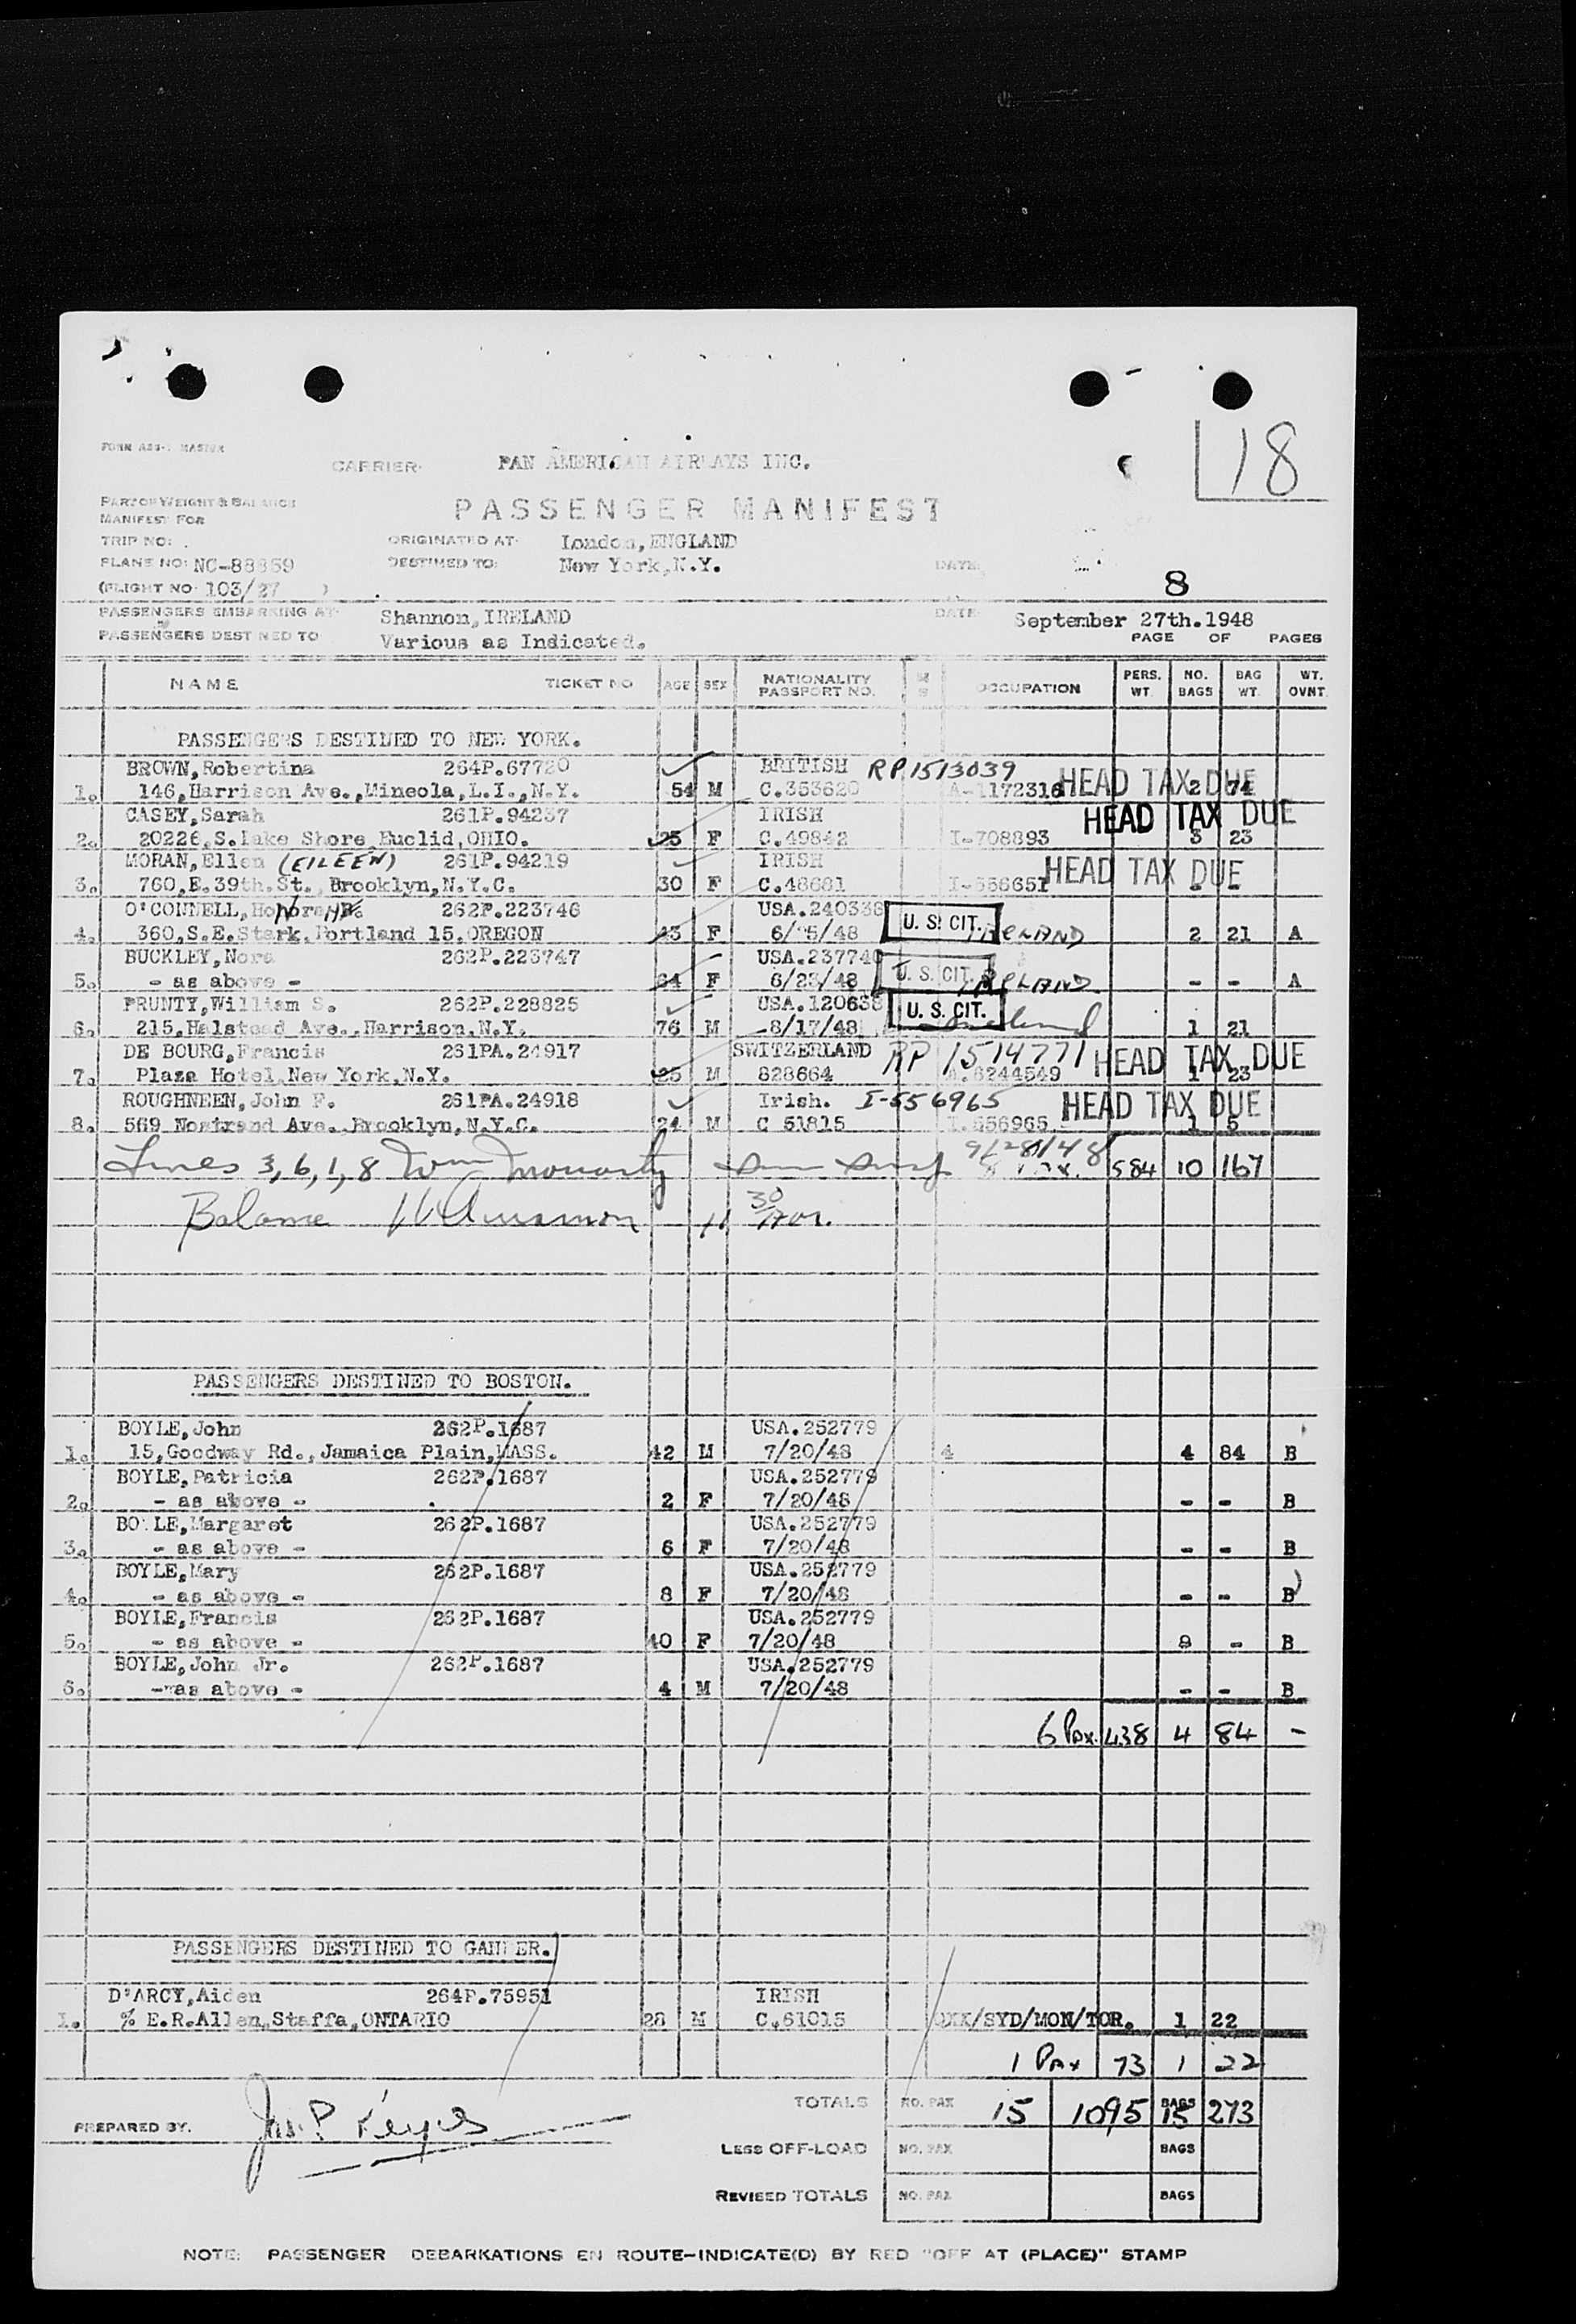 18
CARRIER PAN AMERICAN AIRWAYS INC.
PASSENGER MANIFEST
MANIFEST FOR
TRIP NO: ORIGINATED AT: London, ENGLAND
PLANE NO: NC-88859 DESTINED TO: New York, N.Y. DATE:
(FLIGHT NO 103/27 ) 8
PASSENGERS EMBARKING AT: Shannon, IRELAND DATE September 27th.1948
PASSENGERS DESTINED TO Various as Indicated. PAGE OF PAGES
NAME TICKET NO AGE SEX NATIONALITY PASSPORT NO. OCCUPATION PERS. WT. NO. BAGS BAG WT. WT. OVNT.
PASSENGERS DESTINED TO NEW YORK.
BROWN, Robertina 264P.67720 BRITISH RP.1513039 HEAD TAX DUE
1. 146, Harrison Ave., Mineola, L.I., N.Y. 54 M C.353620 A-1172316 2 74
CASEY, Sarah 261P.94237 IRISH HEAD TAX DUE
2. 20226, S. Lake Shore, Euclid, OHIO. 25 F C.49842 I-708893 3 23
MORAN, Ellen (EILEEN) 261P.94219 IRISH HEAD TAX DUE
3. 760, E. 39th. St., Brooklyn, N.Y.C. 30 F C.48681 I-556651 - -
O'CONNELL, 262P.223746 USA.240338 U. S. CIT.
4. 360, S.E. Stark, Portland 15, OREGON F 6/25/48 IRELAND 2 21 A
BUCKLEY, Nora 262P.223747 USA.237740 U. S. CIT.
5. - as above - 64 F 6/23/48 IRELAND - - A
PRUNTY, William S. 262P.228825 USA.120638 U. S. CIT.
6. 215, Halstead Ave., Harrison, N.Y. 76 M 8/17/48 Ireland 1 21
DE BOURG, Francis 261PA.24917 SWITZERLAND RP 1514771 HEAD TAX DUE
7. Plaza Hotel, New York, N.Y. 25 M 828664 A.6244549 1 23
ROUGHNEEN, John F. 261PA.24918 Irish. I-556965 HEAD TAX DUE
8. 569 Nostrand Ave., Brooklyn, N.Y.C. 24 M C 51815 I.556965 1 5
Lines 3, 6, 1, 8 Wm Moriarty 9/28/48 8 PAX. 584 10 167
Balance
PASSENGERS DESTINED TO BOSTON.
BOYLE, John 262P.1687 USA.252779
1. 15, Goodway Rd., Jamaica Plain, MASS. 42 M 7/20/48 4 4 84 B
BOYLE, Patricia 262P.1687 USA.252779
2. - as above - 2 F 7/20/48 - - B
BOYLE, Margaret 262P.1687 USA.252779
3. - as above - 6 F 7/20/48 - - B
BOYLE, Mary 262P.1687 USA.252779
4. - as above - 8 F 7/20/48 - - B
BOYLE, Francis 262P.1687 USA.252779
5. - as above - 40 F 7/20/48 - B
BOYLE, John Jr. 262P.1687 USA.252779
6. - as above - 4 M 7/20/48 - - B
6 Pax. 438 4 84 -
PASSENGERS DESTINED TO GANDER.
D'ARCY, Aiden 264P.75951 IRISH
1. % E.R. Allen, Staffa, ONTARIO 28 M C.61015 QXK/SYD/MON/TOR. 1 22
1 Pax 73 1 22
TOTALS NO. PAX 15 1095 BAGS 15 273
PREPARED BY. Jas. P. Keyes
LESS OFF-LOAD NO. PAX BAGS
REVISED TOTALS NO. PAX BAGS
NOTE: PASSENGER DEBARKATIONS EN ROUTE-INDICATE(D) BY RED "OFF AT (PLACE)" STAMP